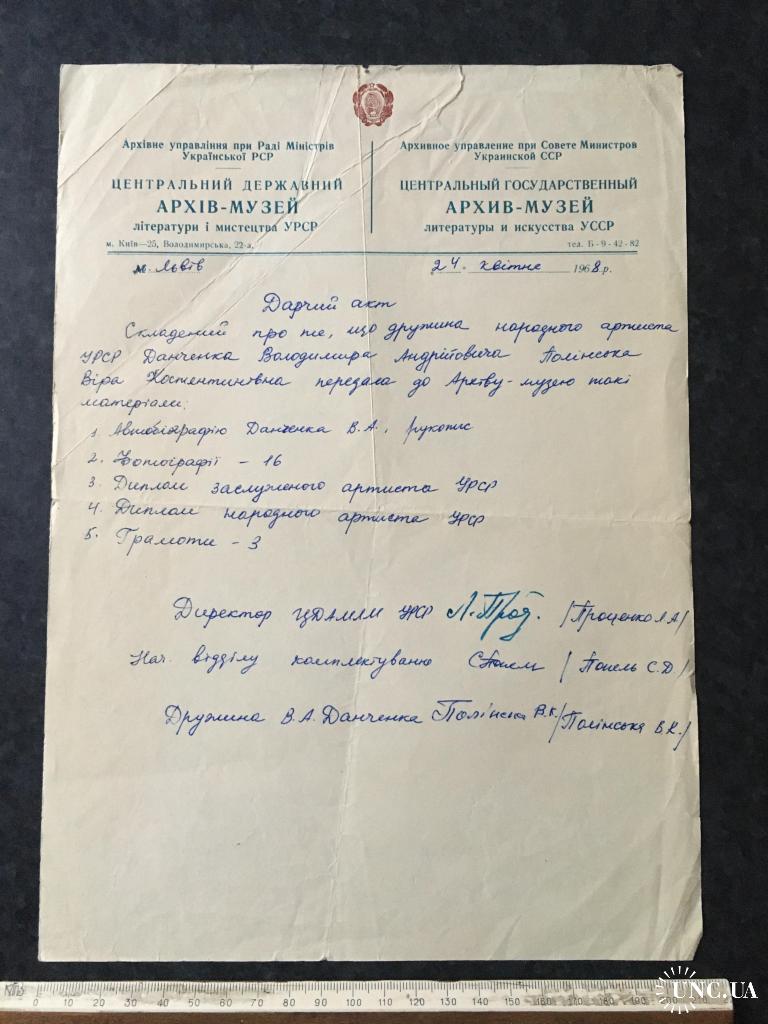 Архівне управління при Раді Міністрів
Української РСР
ЦЕНТРАЛЬНИЙ ДЕРЖАВНИЙ
АРХІВ-МУЗЕЙ
літератури і мистецтва УРСР
м. Київ—25, Володимирська, 22-а.
Архивное управление при Совете Министров
Украинской ССР
ЦЕНТРАЛЬНЫЙ ГОСУДАРСТВЕННЫЙ
АРХИВ-МУЗЕЙ
литературы и искусства УССР
тел. Б-9-42-82
м. Львів
24 квітне 1968 р.
Дарчий акт
Складений про те, що дружина народного артиста
УРСР Данченка Володимира Андрійовича Полінська
Віра Костентинівна передала до Архіву-музею такі
матеріали:
1. Автобіографію Данченка В.А., рукопис
2. Фотографії – 16
3. Диплом заслуженого артиста УРСР
4. Диплом народного артиста УРСР
5. Грамоти – 3
Директор ЦДАМЛМ УРСР /Проценко Л А/
Нач. відділу комплектуваню /Попель С.Д./
Дружина В.А. Данченка Полінська В.К. /Полінська В.К./
0 10 20 30 40 50 60 70 80 90 100 110 120 130 140 150 160 170 180 190
UNC.UA